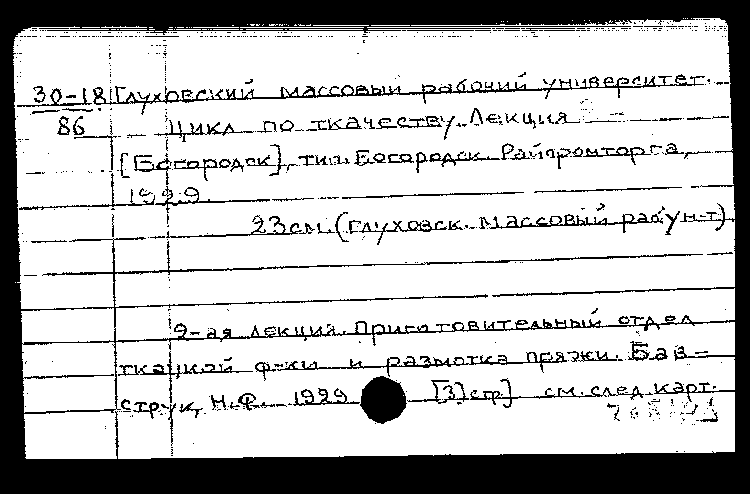 30-18 Глуховский массовый рабочий университет.
86 Цикл по ткачеству. Лекция –
[Богородск], тип. Богородск. Райпромторга,
1929.
23 см. (Глуховск. массовый раб. ун-т)
2-ая лекция. Приготовительный отдел
ткацкой ф-ки и размотка пряжи. Бав-
струк, Н.Ф. 1929 [3] стр] см. след. карт.